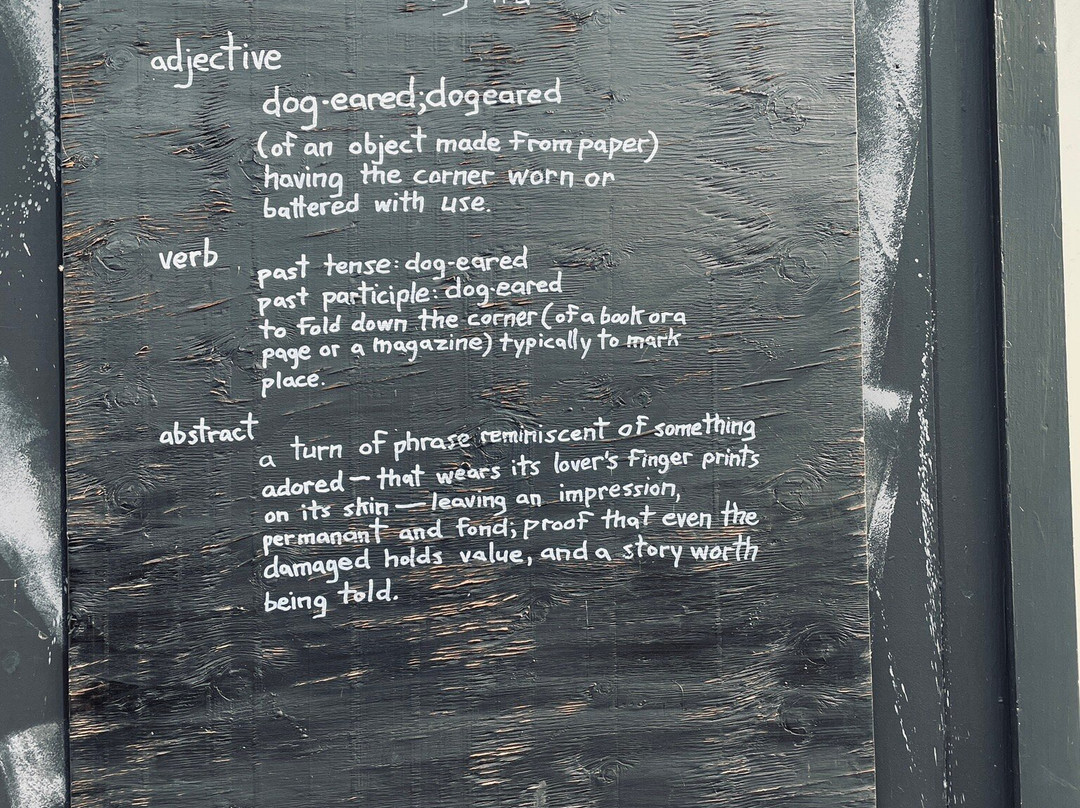 adjective
dog-eared;dogeared
(of an object made from paper)
having the corner worn or
battered with use.
verb
past tense: dog-eared
past participle: dog-eared
to fold down the corner (of a book or a
page or a magazine) typically to mark
place.
abstract
a turn of phrase reminiscent of something
adored — that wears its lover's finger prints
on its skin — leaving an impression,
permanant and fond; proof that even the
damaged holds value, and a story worth
being told.